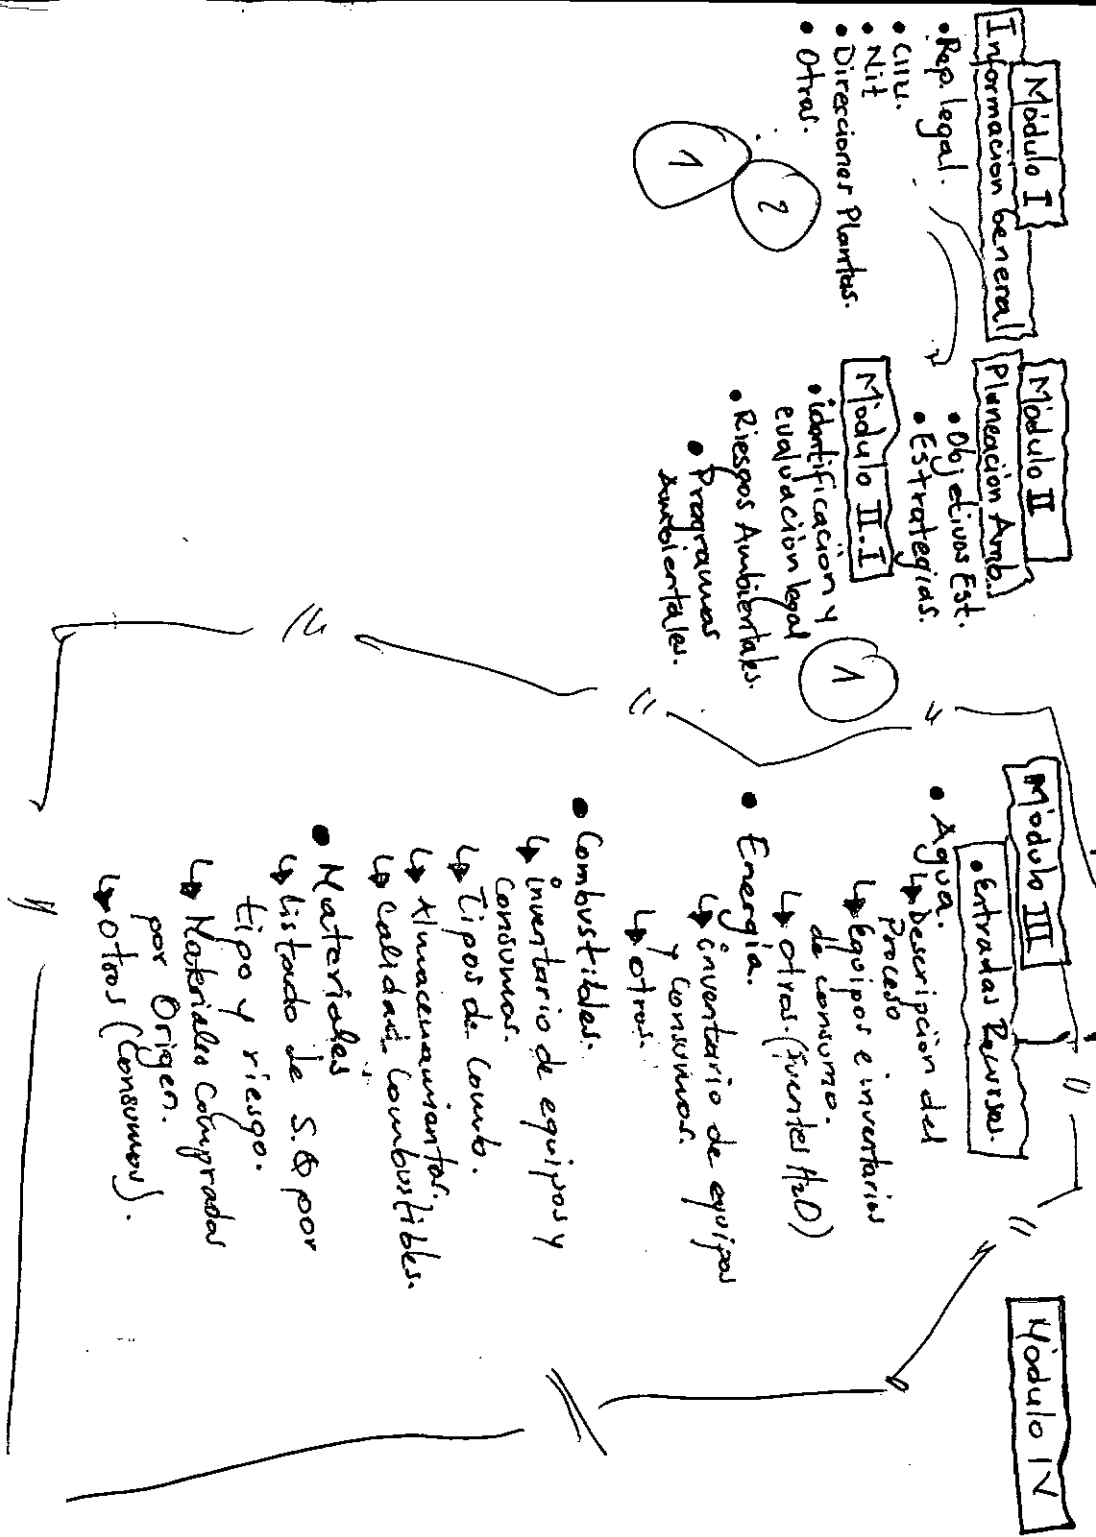 Módulo I
Información General
• Rep. legal.
• CIIU.
• Nit
• Direcciones Plantas.
• Otras.
1
2
Módulo II
Planeación Amb.
• Objetivos Est.
• Estrategias.
Módulo II.I
• identificación y
evaluación legal
• Riesgos Ambientales.
• Programas
Ambientales.
1
Módulo III
• Entradas Recursos.
• Agua.
↳ Descripción del
Proceso
↳ Equipos e inventarios
de consumo.
↳ otros. (fuentes H2O)
• Energía.
↳ inventario de equipos
y consumos.
↳ otros.
• Combustibles.
↳ inventario de equipos y
consumos.
↳ Tipos de Comb.
↳ Almacenamientos.
↳ Calidad Combustibles.
• Materiales
↳ listado de S.Q por
tipo y riesgo.
↳ Materiales Comprados
por Origen.
↳ otros (Consumos).
Módulo IV